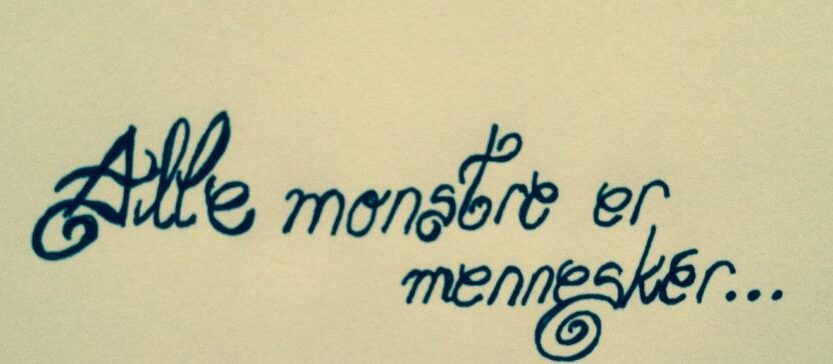 Alle monstre er
mennesker...